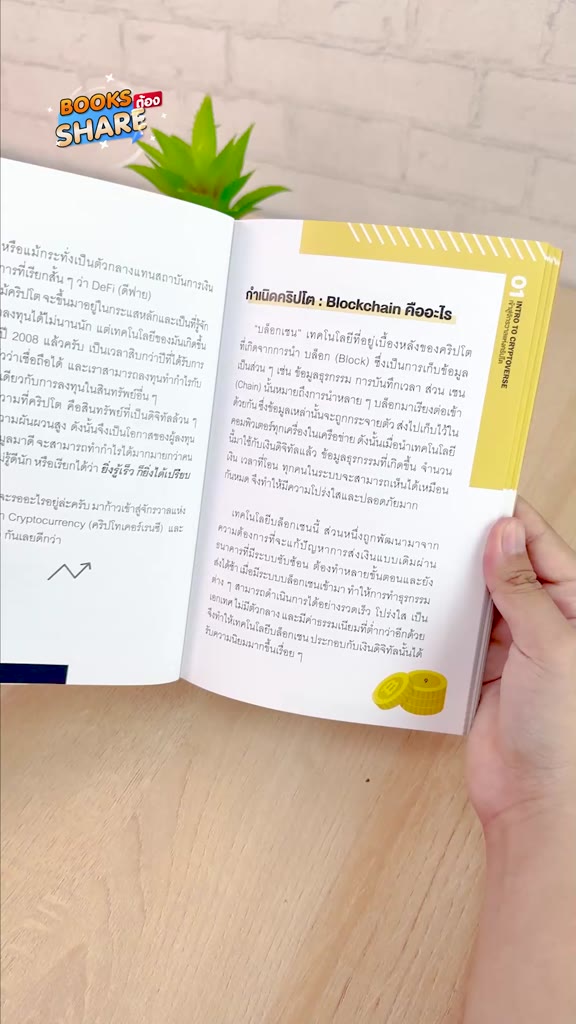 BOOKS
ต้อง
SHARE
หรือแม้กระทั่งเป็นตัวกลางแทนสถาบันการเงิน
การที่เรียกสั้น ๆ ว่า DeFi (ดีฟาย)
คริปโต จะขึ้นมาอยู่ในกระแสหลักและเป็นที่รู้จัก
ลงทุนได้ไม่นานนัก แต่เทคโนโลยีของมันเกิดขึ้น
ปี 2008 แล้วครับ เป็นเวลาสิบกว่าปีที่ได้รับการ
ว่าเชื่อถือได้ และเราสามารถลงทุนทำกำไรกับ
เดียวกับการลงทุนในสินทรัพย์อื่น ๆ
ความที่คริปโต คือสินทรัพย์ที่เป็นดิจิทัลล้วน ๆ
ความผันผวนสูง ดังนั้นจึงเป็นโอกาสของผู้ลงทุน
มูลมาดี จะสามารถทำกำไรได้มากมายกว่าคน
รู้ดีนัก หรือเรียกได้ว่า ยิ่งรู้เร็ว ก็ยิ่งได้เปรียบ
จะรออะไรอยู่ล่ะครับ มาก้าวเข้าสู่จักรวาลแห่ง
Cryptocurrency (คริปโทเคอร์เรนซี) และ
กันเลยดีกว่า
กำเนิดคริปโต : Blockchain คืออะไร
"บล็อกเชน" เทคโนโลยีที่อยู่เบื้องหลังของคริปโต
ที่เกิดจากการนำ บล็อก (Block) ซึ่งเป็นการเก็บข้อมูล
เป็นส่วน ๆ เช่น ข้อมูลธุรกรรม การบันทึกเวลา ส่วน เชน
(Chain) นั้นหมายถึงการนำหลาย ๆ บล็อกมาเรียงต่อเข้า
ด้วยกัน ซึ่งข้อมูลเหล่านั้นจะถูกกระจายตัว ส่งไปเก็บไว้ใน
คอมพิวเตอร์ทุกเครื่องในเครือข่าย ดังนั้นเมื่อนำเทคโนโลยี
นี้มาใช้กับเงินดิจิทัลแล้ว ข้อมูลธุรกรรมที่เกิดขึ้น จำนวน
เงิน เวลาที่โอน ทุกคนในระบบจะสามารถเห็นได้เหมือน
กันหมด จึงทำให้มีความโปร่งใสและปลอดภัยมาก
เทคโนโลยีบล็อกเชนนี้ ส่วนหนึ่งถูกพัฒนามาจาก
ความต้องการที่จะแก้ปัญหาการส่งเงินแบบเดิมผ่าน
ธนาคารที่มีระบบซับซ้อน ต้องทำหลายขั้นตอนและยัง
ส่งได้ช้า เมื่อมีระบบบล็อกเชนเข้ามา ทำให้การทำธุรกรรม
ต่าง ๆ สามารถดำเนินการได้อย่างรวดเร็ว โปร่งใส เป็น
เอกเทศ ไม่มีตัวกลาง และมีค่าธรรมเนียมที่ต่ำกว่าอีกด้วย
จึงทำให้เทคโนโลยีบล็อกเชน ประกอบกับเงินดิจิทัลนั้นได้
รับความนิยมมากขึ้นเรื่อย ๆ
9
01
INTRO TO CRYPTOVERSE
เข้าสู่จักรวาลแห่งคริปโต